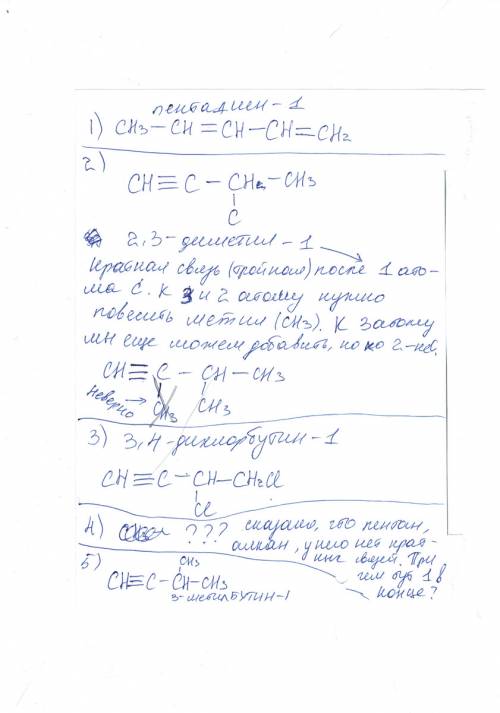 пентадиен-1
1) CH3 – CH = CH – CH = CH2
2)
CH ≡ C – CH2 – CH3
C
2,3-диметил-1
Кратная связь (тройная) после 1 ато-
ма C. К 3 и 2 атому нужно
повесить метил (CH3). К 3 атому
мы еще можем добавить, но ко 2-
CH ≡ C – CH – CH3
неверно → CH3 CH3
3) 3,4-дихлорбутин-1
CH ≡ C – CH – CH2Cl
Cl
4) ??? сказано, что пентан,
алкан, у него нет крат-
ных связей. При
чем тут 1 в
конце?
5)
CH3
CH ≡ C – CH – CH3
3-метилбутин-1